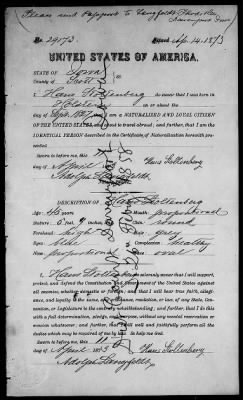 Please send Passport to
Davenport Iowa
No. 29173 Issued Apr. 14. 1873
UNITED STATES OF AMERICA.
STATE OF Iowa
COUNTY OF Scott
I, Hans Stoltenberg do swear that I was born in
Holstein on or about the
day of Sept. 1827 that I am a NATURALIZED AND LOYAL CITIZEN
OF THE UNITED STATES, and about to travel abroad; and further, that I am the
IDENTICAL PERSON described in the Certificate of Naturalization herewith presented
Sworn to before me this 11
day of April 1873 Hans Stoltenberg
Adolph Langfeldt
DESCRIPTION OF Hans Stoltenberg
Age: 45 years Mouth: proportional
Stature: 5 feet 9 inches Chin: round
Forehead: high Hair: grey
Eyes: blue Complexion: healthy
Nose: proportional Face: oval
I, Hans Stoltenberg solemnly swear that I will support,
protect, and defend the Constitution and Government of the United States against
all enemies, whether domestic or foreign; and that I will bear true faith, allegiance,
and loyalty to the same, any ordinance, resolution, or law of any State, Convention,
or Legislature to the contrary notwithstanding; and further, that I do this
with a full determination, pledge, and purpose, without any mental reservation or
evasion whatsoever; and further, that I will well and faithfully perform all the duties
which may be required of me by law. So help me God.
Sworn to before me this 11
day of April 1873 Hans Stoltenberg
Adolph Langfeldt